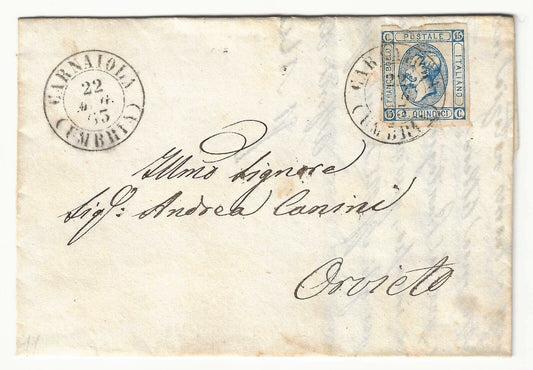 CARNAIOLA
22
63
(UMBRIA)
C. POSTALE 15
FRANCO BOLLO
ITALIANO
15 C. QUINDICI C.
Illmo Signore
Sigr. Andrea Canini
Orvieto